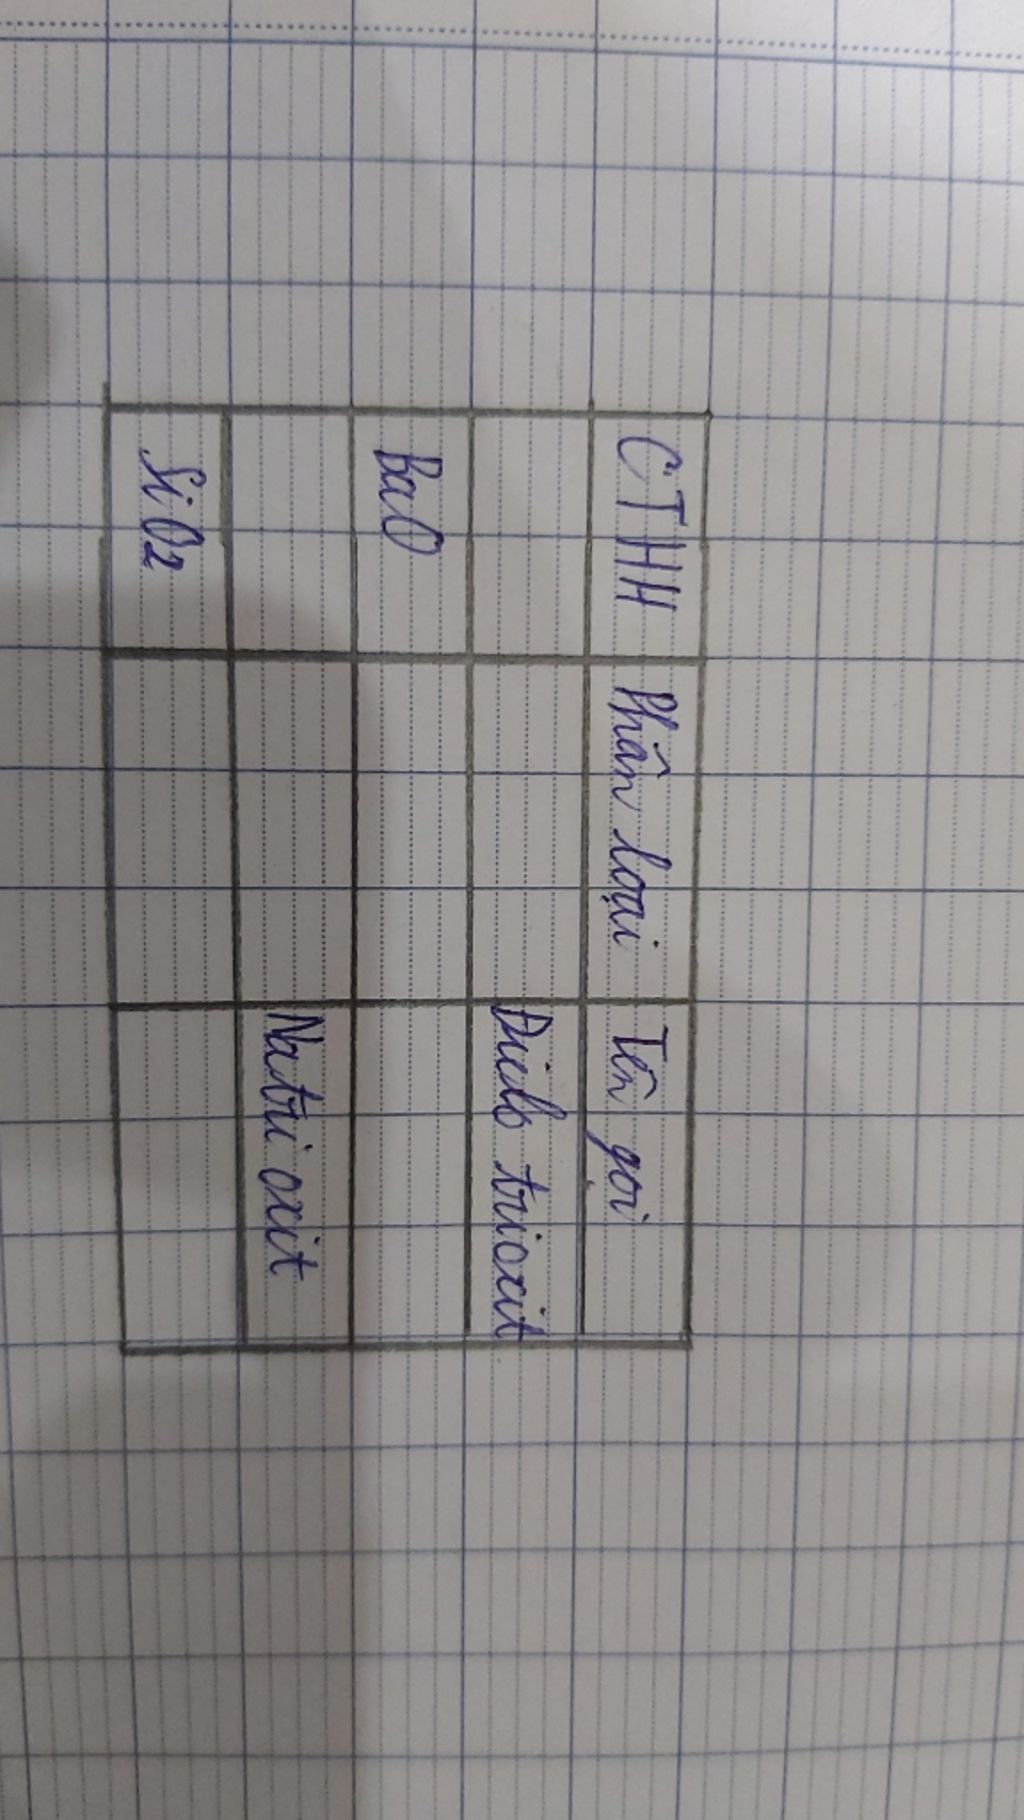 CTHH Phân loại Tên gọi
Điclo trioxit
BaO
Natri oxit
SiO2